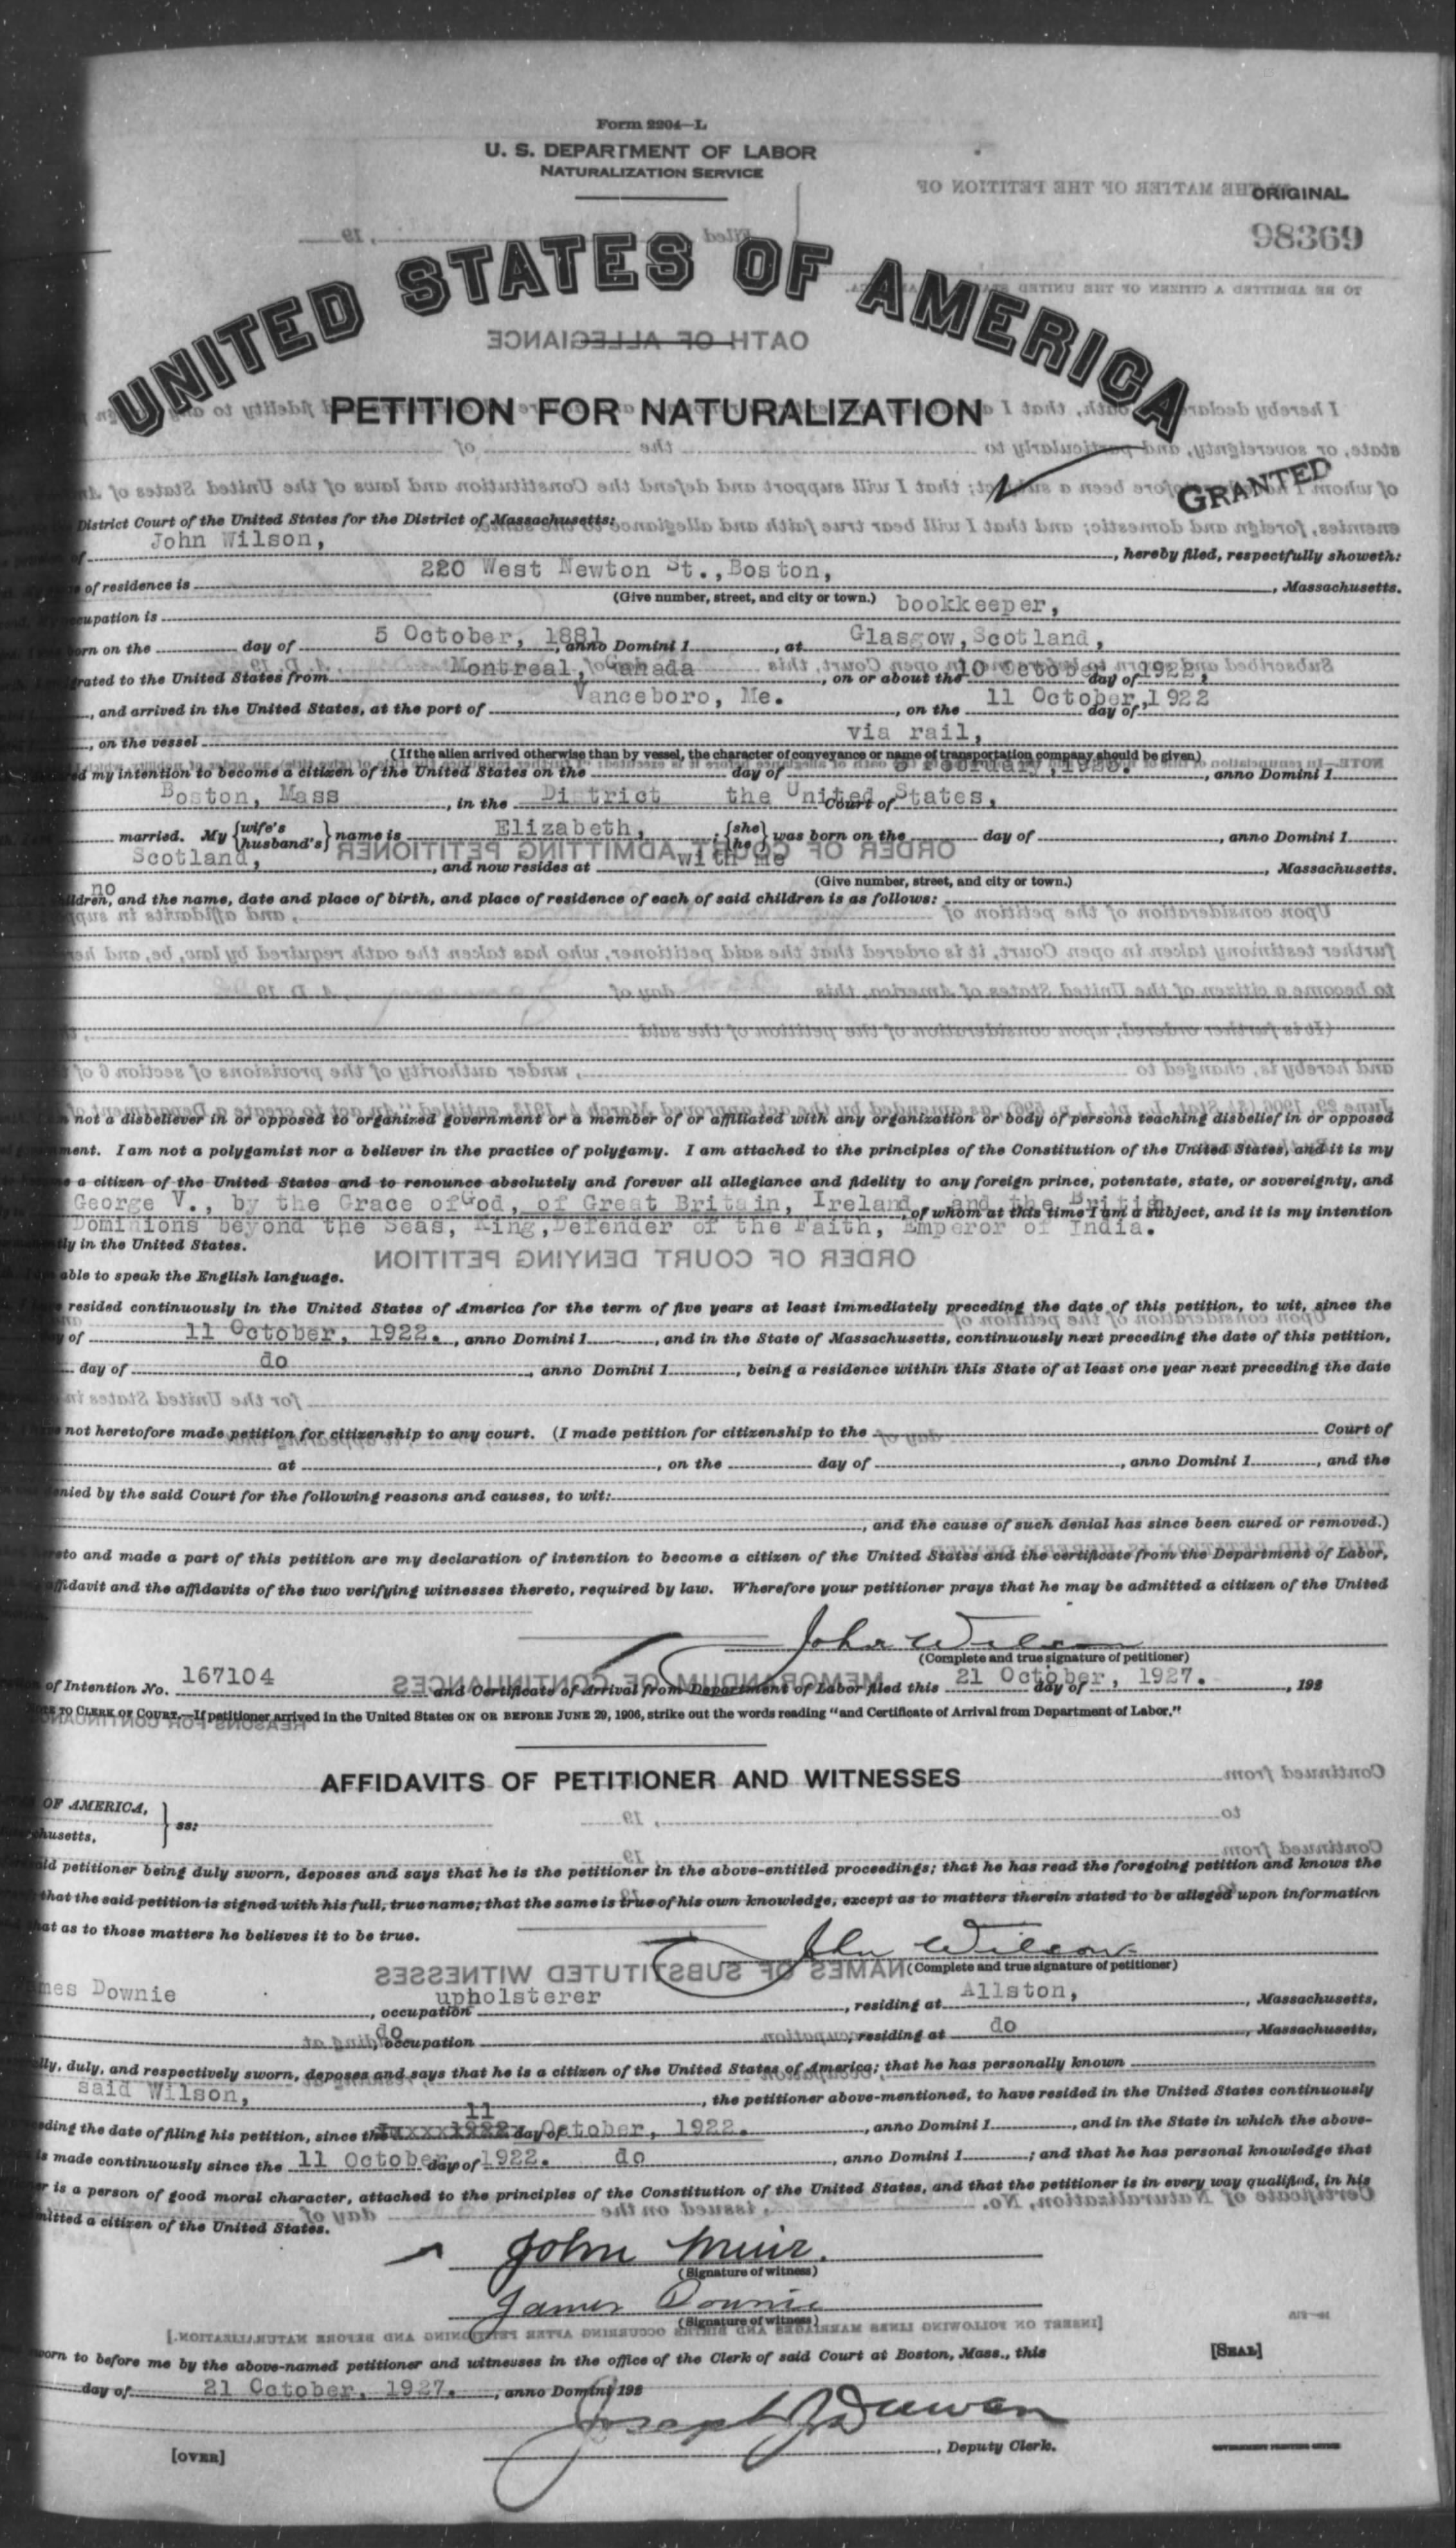 Form 2204—L
U. S. DEPARTMENT OF LABOR
NATURALIZATION SERVICE
ORIGINAL
98369
UNITED STATES OF AMERICA
PETITION FOR NATURALIZATION
GRANTED
District Court of the United States for the District of Massachusetts:
of John Wilson, , hereby filed, respectfully showeth:
of residence is 220 West Newton St., Boston, , Massachusetts.
(Give number, street, and city or town.)
occupation is bookkeeper,
born on the 5 October, 1881 day of , anno Domini 1 , at Glasgow, Scotland,
grated to the United States from Montreal, Canada , on or about the 10 October 1922, day of
, and arrived in the United States, at the port of Vanceboro, Me. , on the 11 October, 1922 day of
, on the vessel via rail,
(If the alien arrived otherwise than by vessel, the character of conveyance or name of transportation company should be given)
ed my intention to become a citizen of the United States on the day of February, , anno Domini 1
Boston, Mass , in the District Court of the United States,
married. My {wife's husband's} name is Elizabeth, ; {she he} was born on the day of , anno Domini 1
Scotland, , and now resides at with me , Massachusetts.
(Give number, street, and city or town.)
no
ldren, and the name, date and place of birth, and place of residence of each of said children is as follows:
not a disbeliever in or opposed to organized government or a member of or affiliated with any organization or body of persons teaching disbelief in or opposed
ment. I am not a polygamist nor a believer in the practice of polygamy. I am attached to the principles of the Constitution of the United States, and it is my
a citizen of the United States and to renounce absolutely and forever all allegiance and fidelity to any foreign prince, potentate, state, or sovereignty, and
George V., by the Grace of God, of Great Britain, Ireland and the British , of whom at this time I am a subject, and it is my intention
Dominions beyond the Seas, King, Defender of the Faith, Emperor of India.
tly in the United States.
able to speak the English language.
resided continuously in the United States of America for the term of five years at least immediately preceding the date of this petition, to wit, since the
y of 11 October, 1922. , anno Domini 1 , and in the State of Massachusetts, continuously next preceding the date of this petition,
day of do , anno Domini 1 , being a residence within this State of at least one year next preceding the date
not heretofore made petition for citizenship to any court. (I made petition for citizenship to the Court of
at , on the day of , anno Domini 1 , and the
enied by the said Court for the following reasons and causes, to wit:
, and the cause of such denial has since been cured or removed.)
reto and made a part of this petition are my declaration of intention to become a citizen of the United States and the certificate from the Department of Labor,
affidavit and the affidavits of the two verifying witnesses thereto, required by law. Wherefore your petitioner prays that he may be admitted a citizen of the United
John Wilson
(Complete and true signature of petitioner)
of Intention No. 167104 and Certificate of Arrival from Department of Labor filed this 21 October, 1927. day of , 192
NOTE TO CLERK OF COURT.—If petitioner arrived in the United States ON OR BEFORE JUNE 29, 1906, strike out the words reading "and Certificate of Arrival from Department of Labor."
AFFIDAVITS OF PETITIONER AND WITNESSES
OF AMERICA,
chusetts, } ss:
id petitioner being duly sworn, deposes and says that he is the petitioner in the above-entitled proceedings; that he has read the foregoing petition and knows the
that the said petition is signed with his full, true name; that the same is true of his own knowledge, except as to matters therein stated to be alleged upon information
hat as to those matters he believes it to be true.
John Wilson
(Complete and true signature of petitioner)
mes Downie , occupation upholsterer , residing at Allston, , Massachusetts,
, occupation do , residing at do , Massachusetts,
lly, duly, and respectively sworn, deposes and says that he is a citizen of the United States of America; that he has personally known
said Wilson, , the petitioner above-mentioned, to have resided in the United States continuously
eding the date of filing his petition, since the 11 day of October, 1922. , anno Domini 1 , and in the State in which the above-
is made continuously since the 11 October 1922. day of do , anno Domini 1 ; and that he has personal knowledge that
r is a person of good moral character, attached to the principles of the Constitution of the United States, and that the petitioner is in every way qualified, in his
mitted a citizen of the United States.
John Muir.
(Signature of witness)
James Downie
(Signature of witness)
worn to before me by the above-named petitioner and witnesses in the office of the Clerk of said Court at Boston, Mass., this [SEAL]
day of 21 October, 1927. , anno Domini 192
, Deputy Clerk.
[OVER]
GOVERNMENT PRINTING OFFICE